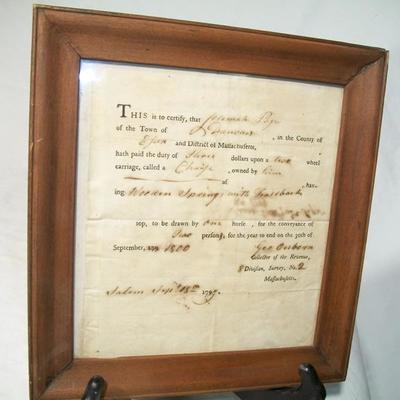 THIS is to certify, that Jeremiah Page
of the Town of Danvers, in the County of
Essex and District of Massachusetts,
hath paid the duty of three dollars upon a two wheel
carriage, called a Chaise, owned by him
of, hav-
ing Wooden Springs with
top, to be drawn by one horse, for the conveyance of
Two persons, for the year to end on the 30th of
September, 1800
Geo Osborn
Collector of the Revenue,
8 Division, Survey, No. 2
Massachusetts.
Salem Sept 18th 1799